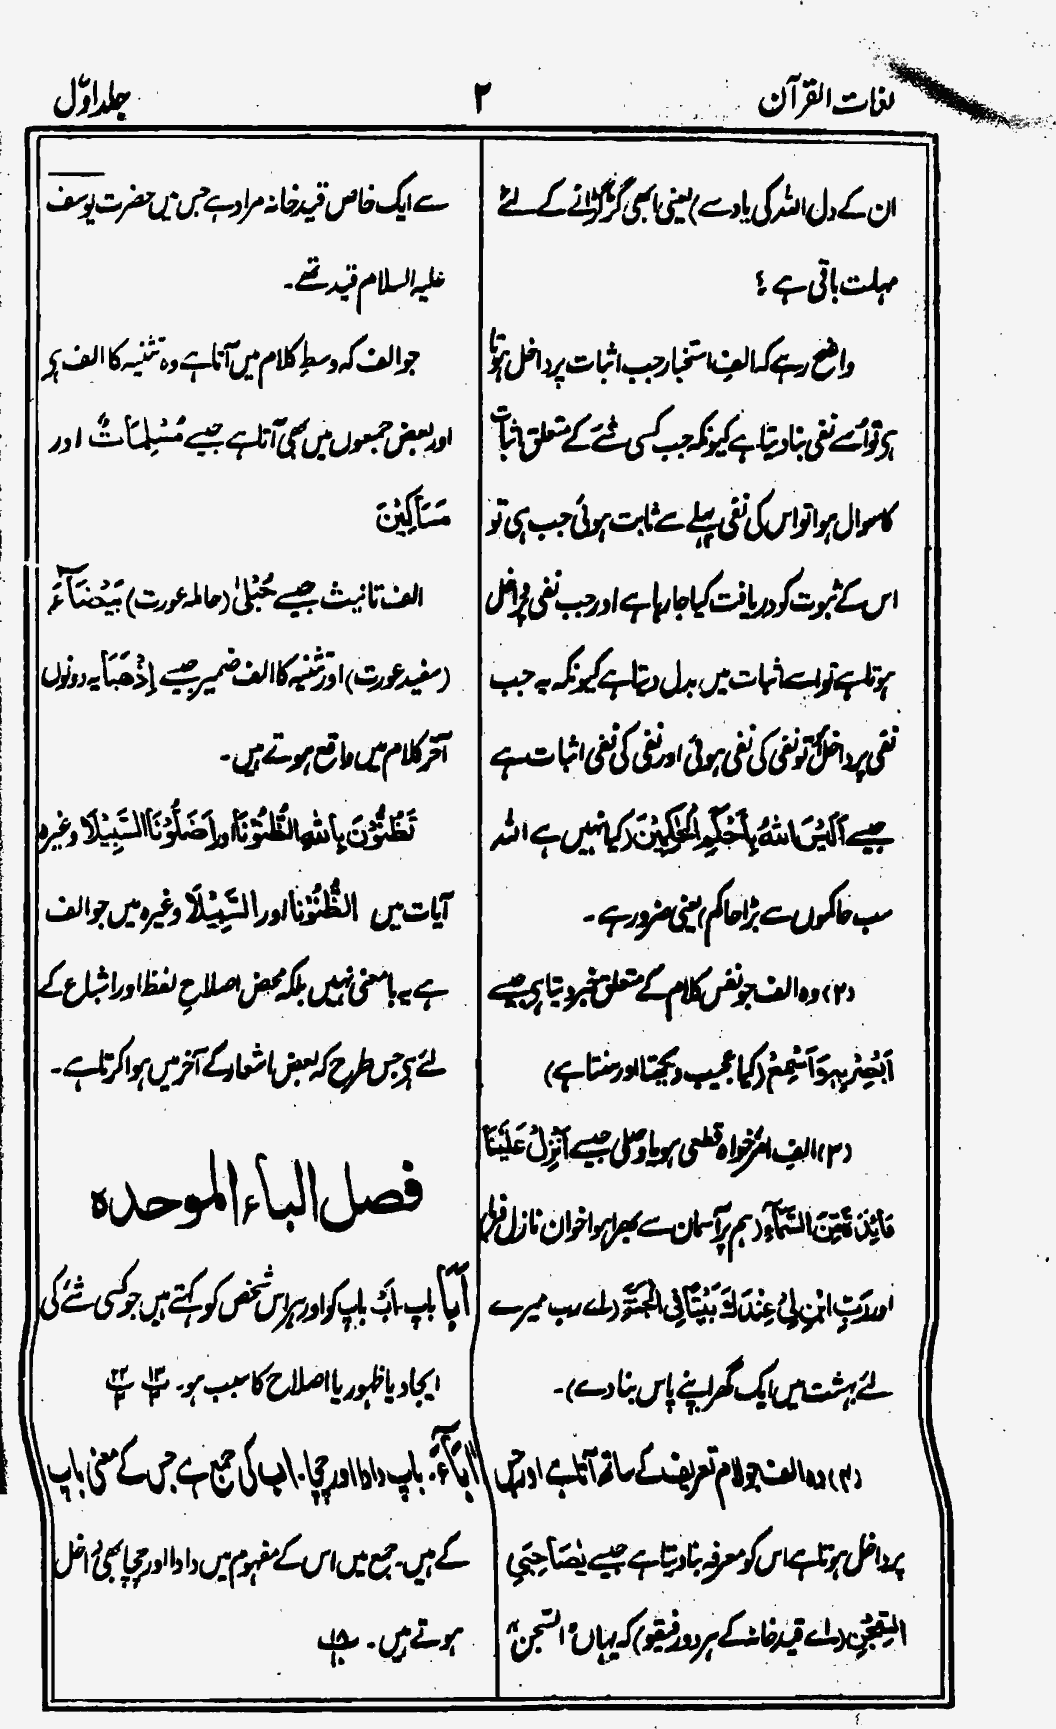 لغات القرآن
۲
جلد اوّل
ان کے دل اللہ کی یاد سے) یعنی ابھی گڑگڑانے کے لئے
مہلت باقی ہے ؟
واضح رہے کہ الفِ استخبار جب اثبات پر داخل ہوتا
ہی تو اُسے نفی بنا دیتا ہے کیونکہ جب کسی شئے کے متعلق اثبات
کا سوال ہوا تو اس کی نفی پہلے سے ثابت ہوئی جب ہی تو
اس کے ثبوت کو دریافت کیا جا رہا ہے اور جب نفی پر داخل
ہوتا ہے تو اسے اثبات میں بدل دیتا ہے کیونکہ یہ جب
نفی پر داخل ہو گا تو نفی کی نفی ہوئی اور نفی کی نفی اثبات ہے
جیسے اَلَیْسَ اللّٰہُ بِاَحْکَمِ الْحٰکِمِیْنَ (کیا نہیں ہے اللہ
سب حاکموں سے بڑا حاکم) یعنی ضرور ہے ۔
(۲) وہ الف جو نفس کلام کے متعلق خبر دیتا ہی جیسے
اَبْصِرْ بِہٖ وَ اَسْمِعْ (کیا عجیب دیکھتا اور سنتا ہے)
(۳) الفِ امر خواہ قطعی ہو یا وصلی جیسے اَنْزِلْ عَلَیْنَا
مَائِدَۃً مِّنَ السَّمَآءِ (ہم پر آسمان سے بھرا ہوا خوان نازل فرما)
اور رَبِّ ابْنِ لِیْ عِنْدَكَ بَیْتًا فِی الْجَنَّۃِ (اے رب میرے
لئے بہشت میں ایک گھر اپنے پاس بنا دے)۔
(۴) وہ الف جو لام تعریف کے ساتھ آتا ہے اور جس
پر داخل ہوتا ہے اس کو معرفہ بنا دیتا ہے جیسے یٰصَاحِبَیِ
السِّجْنِ (اے قید خانہ کے ہر دو رفیقو) کہ یہاں "السّجن"
سے ایک خاص قید خانہ مراد ہے جس میں حضرت یوسف
علیہ السلام قید تھے۔
جو الف کہ وسطِ کلام میں آتا ہے وہ تثنیہ کا الف ہی
اور بعض جمعوں میں بھی آتا ہے جیسے مُسْلِمَاتٌ اور
مَسَاکِیْنَ
الف تانیث جیسے حُبْلیٰ (حاملہ عورت) بَیْضَآءُ
(سفید عورت) اور تثنیہ کا الف ضمیر جیسے اِذْھَبَا یہ دونوں
آخر کلام میں واقع ہوتے ہیں۔
تَظُنُّوْنَ بِاللّٰہِ الظُّنُوْنَا اور اَضَلُّوْنَا السَّبِیْلَا وغیرہ
آیات میں الظُّنُوْنَا اور السَّبِیْلَا وغیرہ میں جو الف
ہے یہ با معنی نہیں بلکہ محض اصلاحِ لفظ اور اشباع کے
لئے ہی جس طرح کہ بعض اشعار کے آخر میں ہوا کرتا ہے۔
فصل الباء الموحدہ
اَبًا باپ۔ اَبٌ باپ کو اور ہر اس شخص کو کہتے ہیں جو کسی شئے کی
ایجاد یا ظہور یا اصلاح کا سبب ہو۔
اٰبَآءُ۔ باپ دادا اور چچا۔ اب کی جمع ہے جس کے معنی باپ
کے ہیں۔ جمع میں اس کے مفہوم میں دادا اور چچا بھی داخل
ہوتے ہیں۔